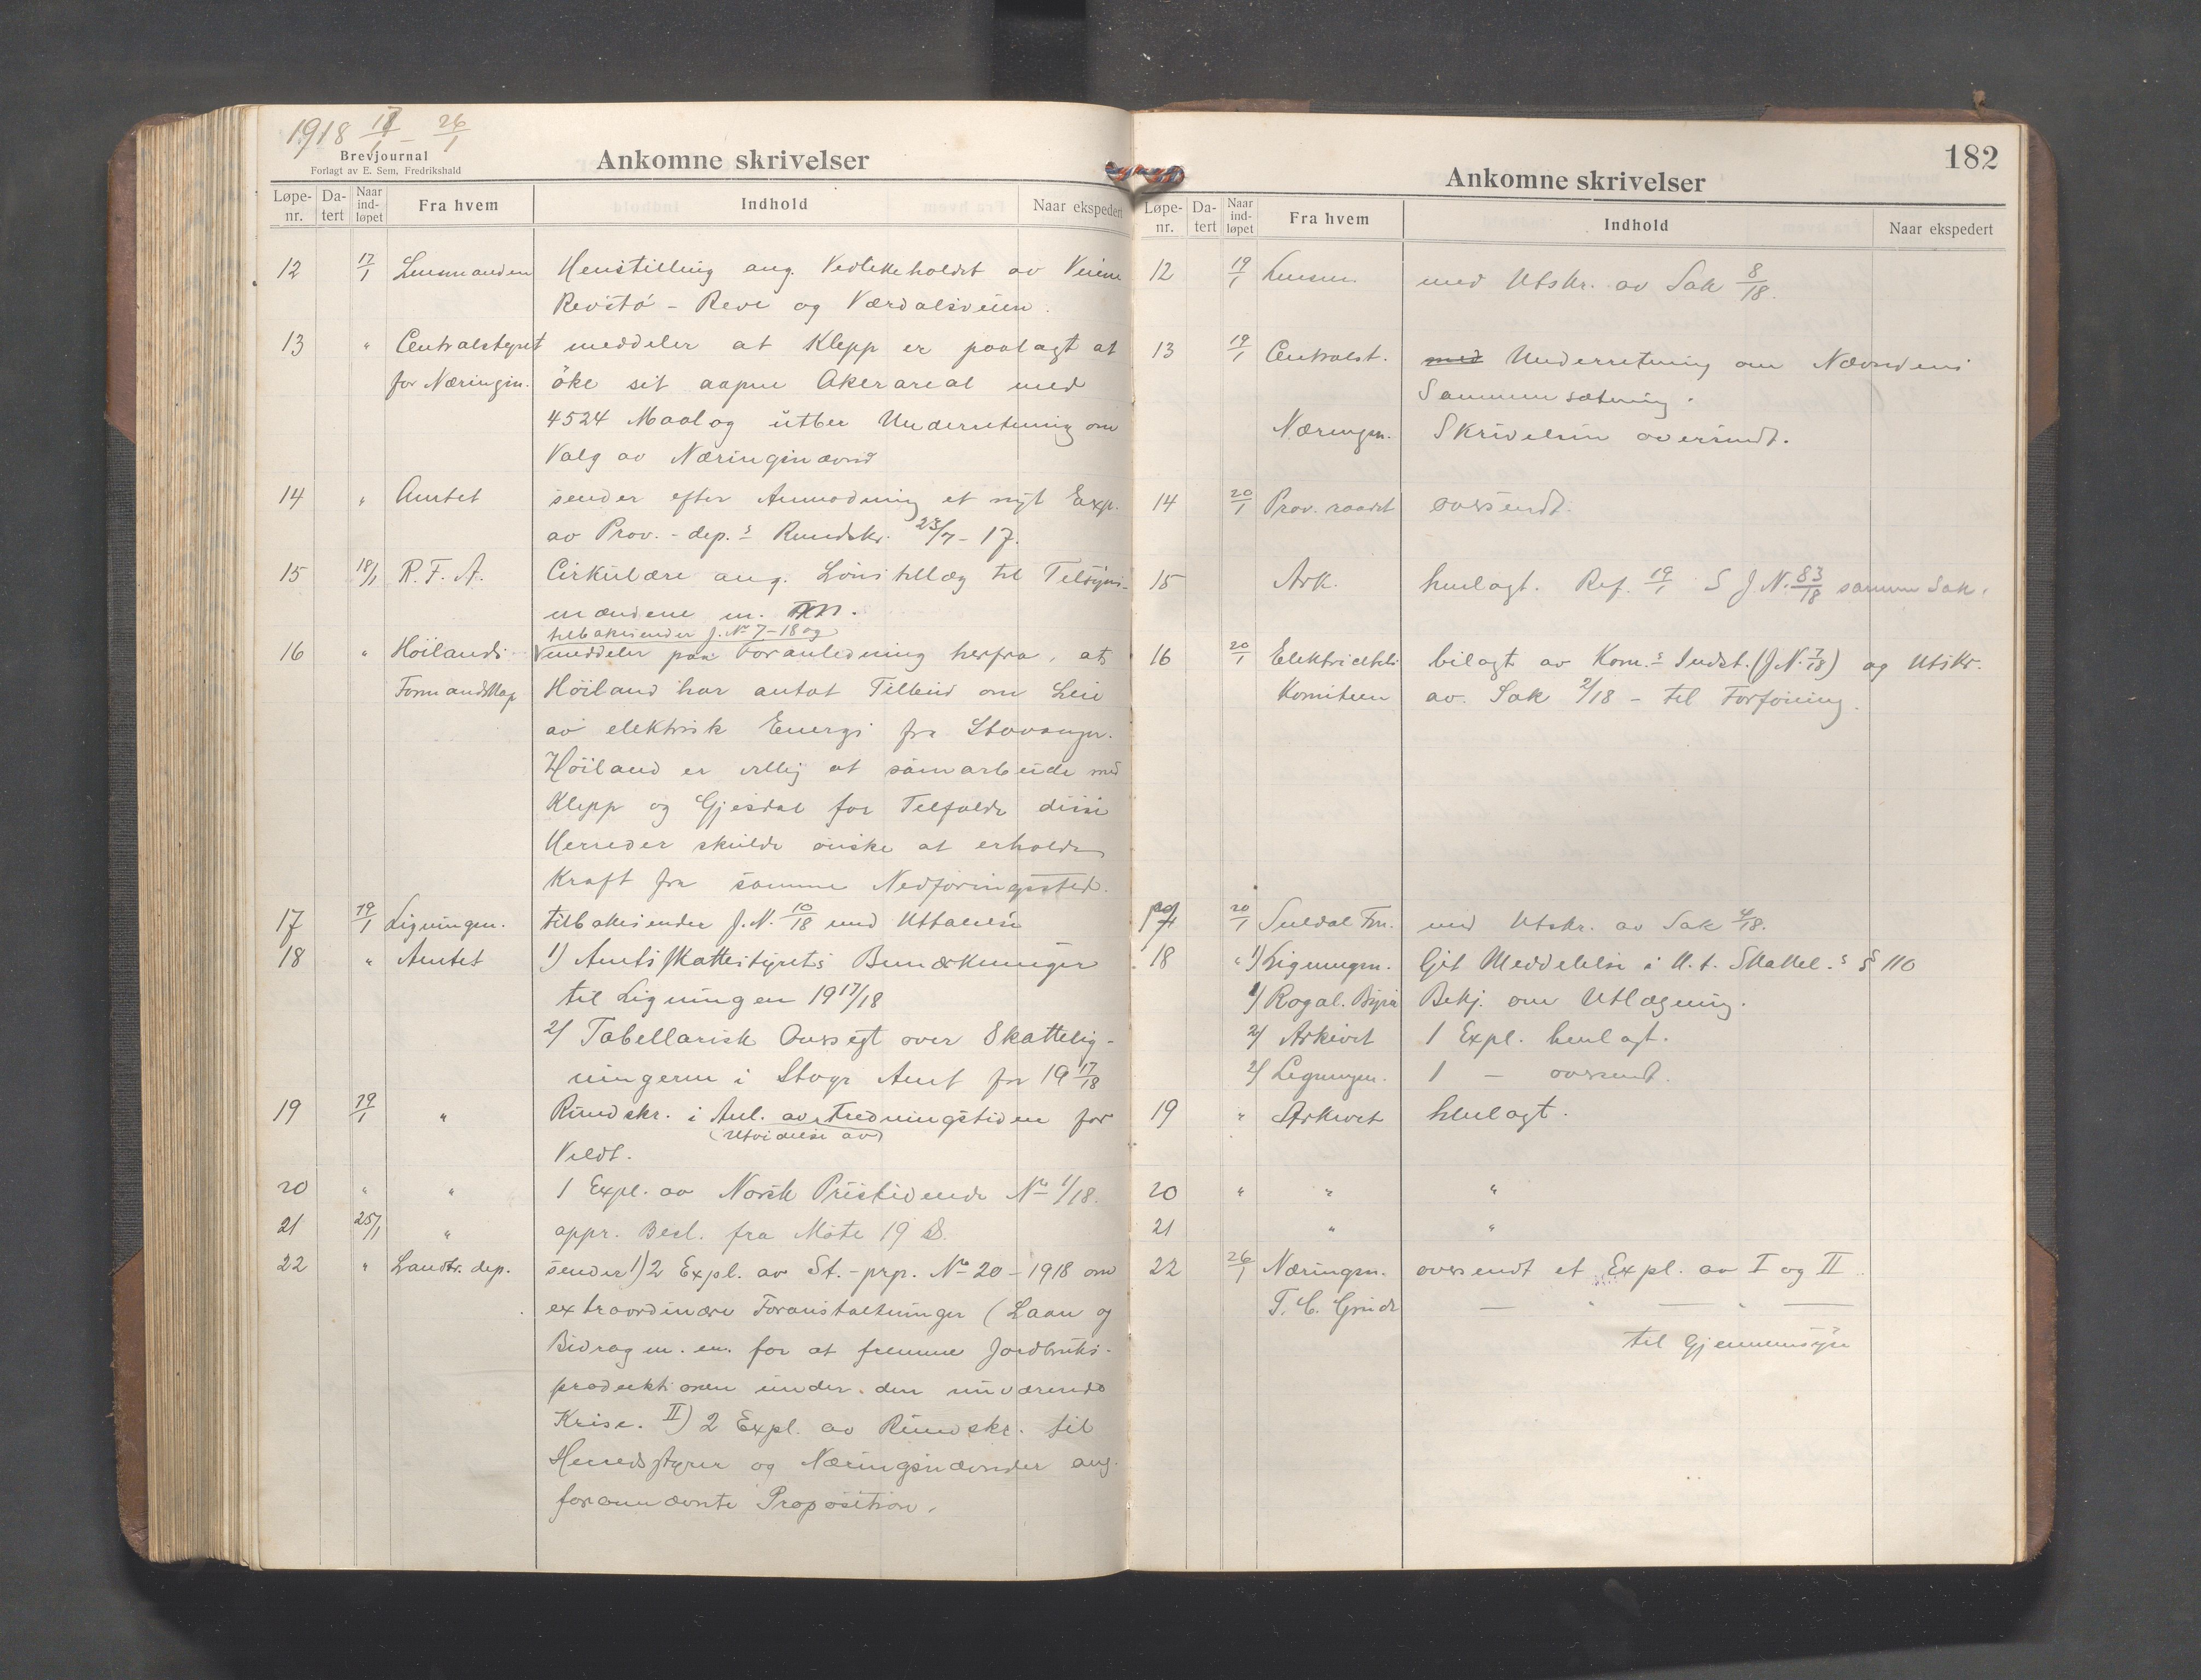 1918 17/1 - 26/1
Brevjournal
Forlagt av E. Sem, Fredrikshald
Ankomne skrivelser
Løpe-nr. Da-tert Naar ind-løpet Fra hvem Indhold Naar ekspedert
12 17/1 Lensmanden Henstilling ang. Vedlikeholdet av Veiene
Revstö - Reve og Værdalsveien.
13 " Centralstyret meddeler at Klepp er paalagt at
for Næringsn. öke sit aapne Akerareal med
4524 Maal og utber Underretning om
Valg av Næringsnævnd
14 " Amtet sender efter Anmodning et nyt Exp.
av Prov.-dep.s Rundskr. 23/7-17.
15 18/1 R. F. A. Cirkulære ang. Lönstillæg til Tilsyns-
mændene m.
tilbakesender J. No 7-18 og
16 " Höilands meddeler paa Foranledning herfra, at
Formandskap Höiland har antat Tilbud om Leie
av elektrisk Energi fra Stavanger.
Höiland er villig at samarbeide med
Klepp og Gjesdal for Tilfælde disse
Herreder skulde önske at erholde
Kraft fra samme Nedföringssted.
17 19/1 Ligningsn. tilbakesender J. N. 10/18 med Uttalelse
18 " Amtet 1) Amtsskattestyrets Bemærkninger
til Ligningen 1917/18
2) Tabellarisk Oversigt over Skattelig-
ningerne i Stvgr Amt for 1917/18
19 19/1 " Rundskr. i Anl. av Fredningstiden for
(Utvidelse av)
Vildt.
20 " " 1 Expl. av Norsk Pristidende No 1/18.
21 25/1 " appr. Besl. fra Möte 19
22 " Landbr. dep. sender 1) 2 Expl. av St.-prp. No 20-1918 om
extraordinære Foranstaltninger (Laan og
Bidrag m. m. for at fremme Jordbruks-
produktionen under den nuværende
Krise. II) 2 Expl. av Rundskr. til
Herredsstyrer og Næringsnævnder ang.
forannævnte Proposition.
182
Ankomne skrivelser
Løpe-nr. Da-tert Naar ind-løpet Fra hvem Indhold Naar ekspedert
12 19/1 Lensm. med Utskr. av Sak 8/18.
13 19/1 Centralst. med Underretning om Nævndens
Sammensætning.
Næringsn. Skrivelsen oversendt.
14 20/1 Prov. raadet oversendt.
15 Ark. henlagt. Ref. 19/1 S J. N. 83/18 samme Sak.
16 20/1 Elektricitets bilagt av Kom.s Indst. (J. N. 7/18) og Utskr.
Komiteen av Sak 2/18 - til Forföining.
17 20/1 Suldal Fm. med Utskr. av Sak 4/18.
18 " 1) Ligningsn. Git Meddelelse i H. t. Skattel.s § 110
1) Rogal. Byrå Bekj. om Utlægning.
2) Arkivet 1 Expl. henlagt.
2) Ligningsn. 1 — oversendt.
19 " Arkivet henlagt.
20 " " "
21 " "
22 26/1 Næringsn. oversendt et Expl. av I og II
T. C. Grude — " — " —
til Gjennemsyn